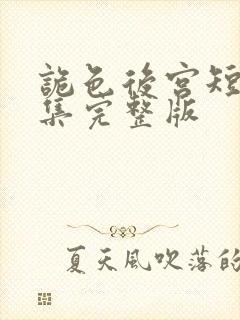 詭色後宮短
集完整版
夏天風吹落的